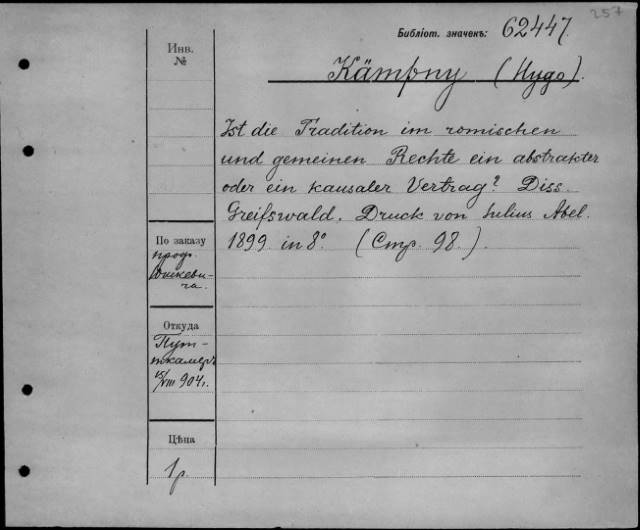 257
Библіот. значекъ: 62447
Инв.
№
Kämpny (Hugo).
Ist die Tradition im romischen
und gemeinen Rechte ein abstrakter
oder ein kausaler Vertrag? Diss.
Greifswald. Druck von Julius Abel.
1899 in 8° (Стр. 98.)
По заказу
проф.
Юшкеви-
ча.
Откуда
Пут-
ткамеръ
15/VIII 904 г.
Цѣна
1 р.